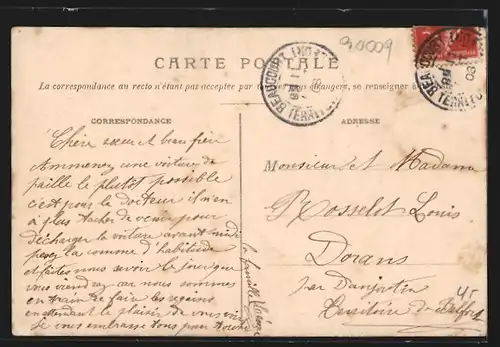 90009
CARTE POSTALE
La correspondance au recto n'étant pas acceptée par étrangers, se renseigner
BEAUCOURT
TERRIT
BEAUCOURT
TERRITO
CORRESPONDANCE
ADRESSE
Chère sœur et beau frère
Ammenez une voiture de
paille le plutot possible
c'est pour le docteur il n'en
à plus tacher de venir pour
décharger la voiture avant midi
la comme d'habitude
et faites nous savoir le jour que
vous viendrez car nous sommes
en train de faire les regains
en attendant le plaisir de vous voir
Je vous embrasse tous pour
la famille
Monsieur et Madame
Rosselot Louis
Dorans
par Danjoutin
Territoire de Belfort
45-